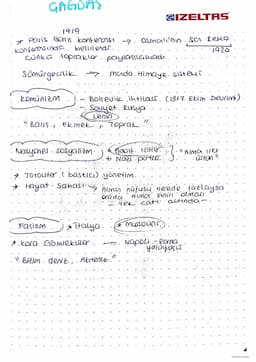 ÇAĞDAŞ
İZELTAŞ
1919
* Paris Barış Konferansı → Osmanlı'nın San Remo
konferansında belirlendi. 1920
Çünkü topraklar paylaşılamadı
Sömürgecilik → Manda, Himaye sistemi
Komünizm - Bolşevik İhtilali (1917 Ekim Devrimi)
- Sovyet Rusya
Lenin
"Barış, Ekmek, Toprak"
Nasyonal Sosyalizm * Adolf Hitler "Alman ırkı
* Nazi Partisi üstün"
* Totaliter (baskıcı) yönetim.
* Hayat Sahası → Alman nüfusu nerede fazlaysa
orası Alman
tek çatı altında
Faşizm * İtalya * Mussolini
* Kara Gömlekliler → Napoli - Roma
yürüyüşü
"Bizim deniz,